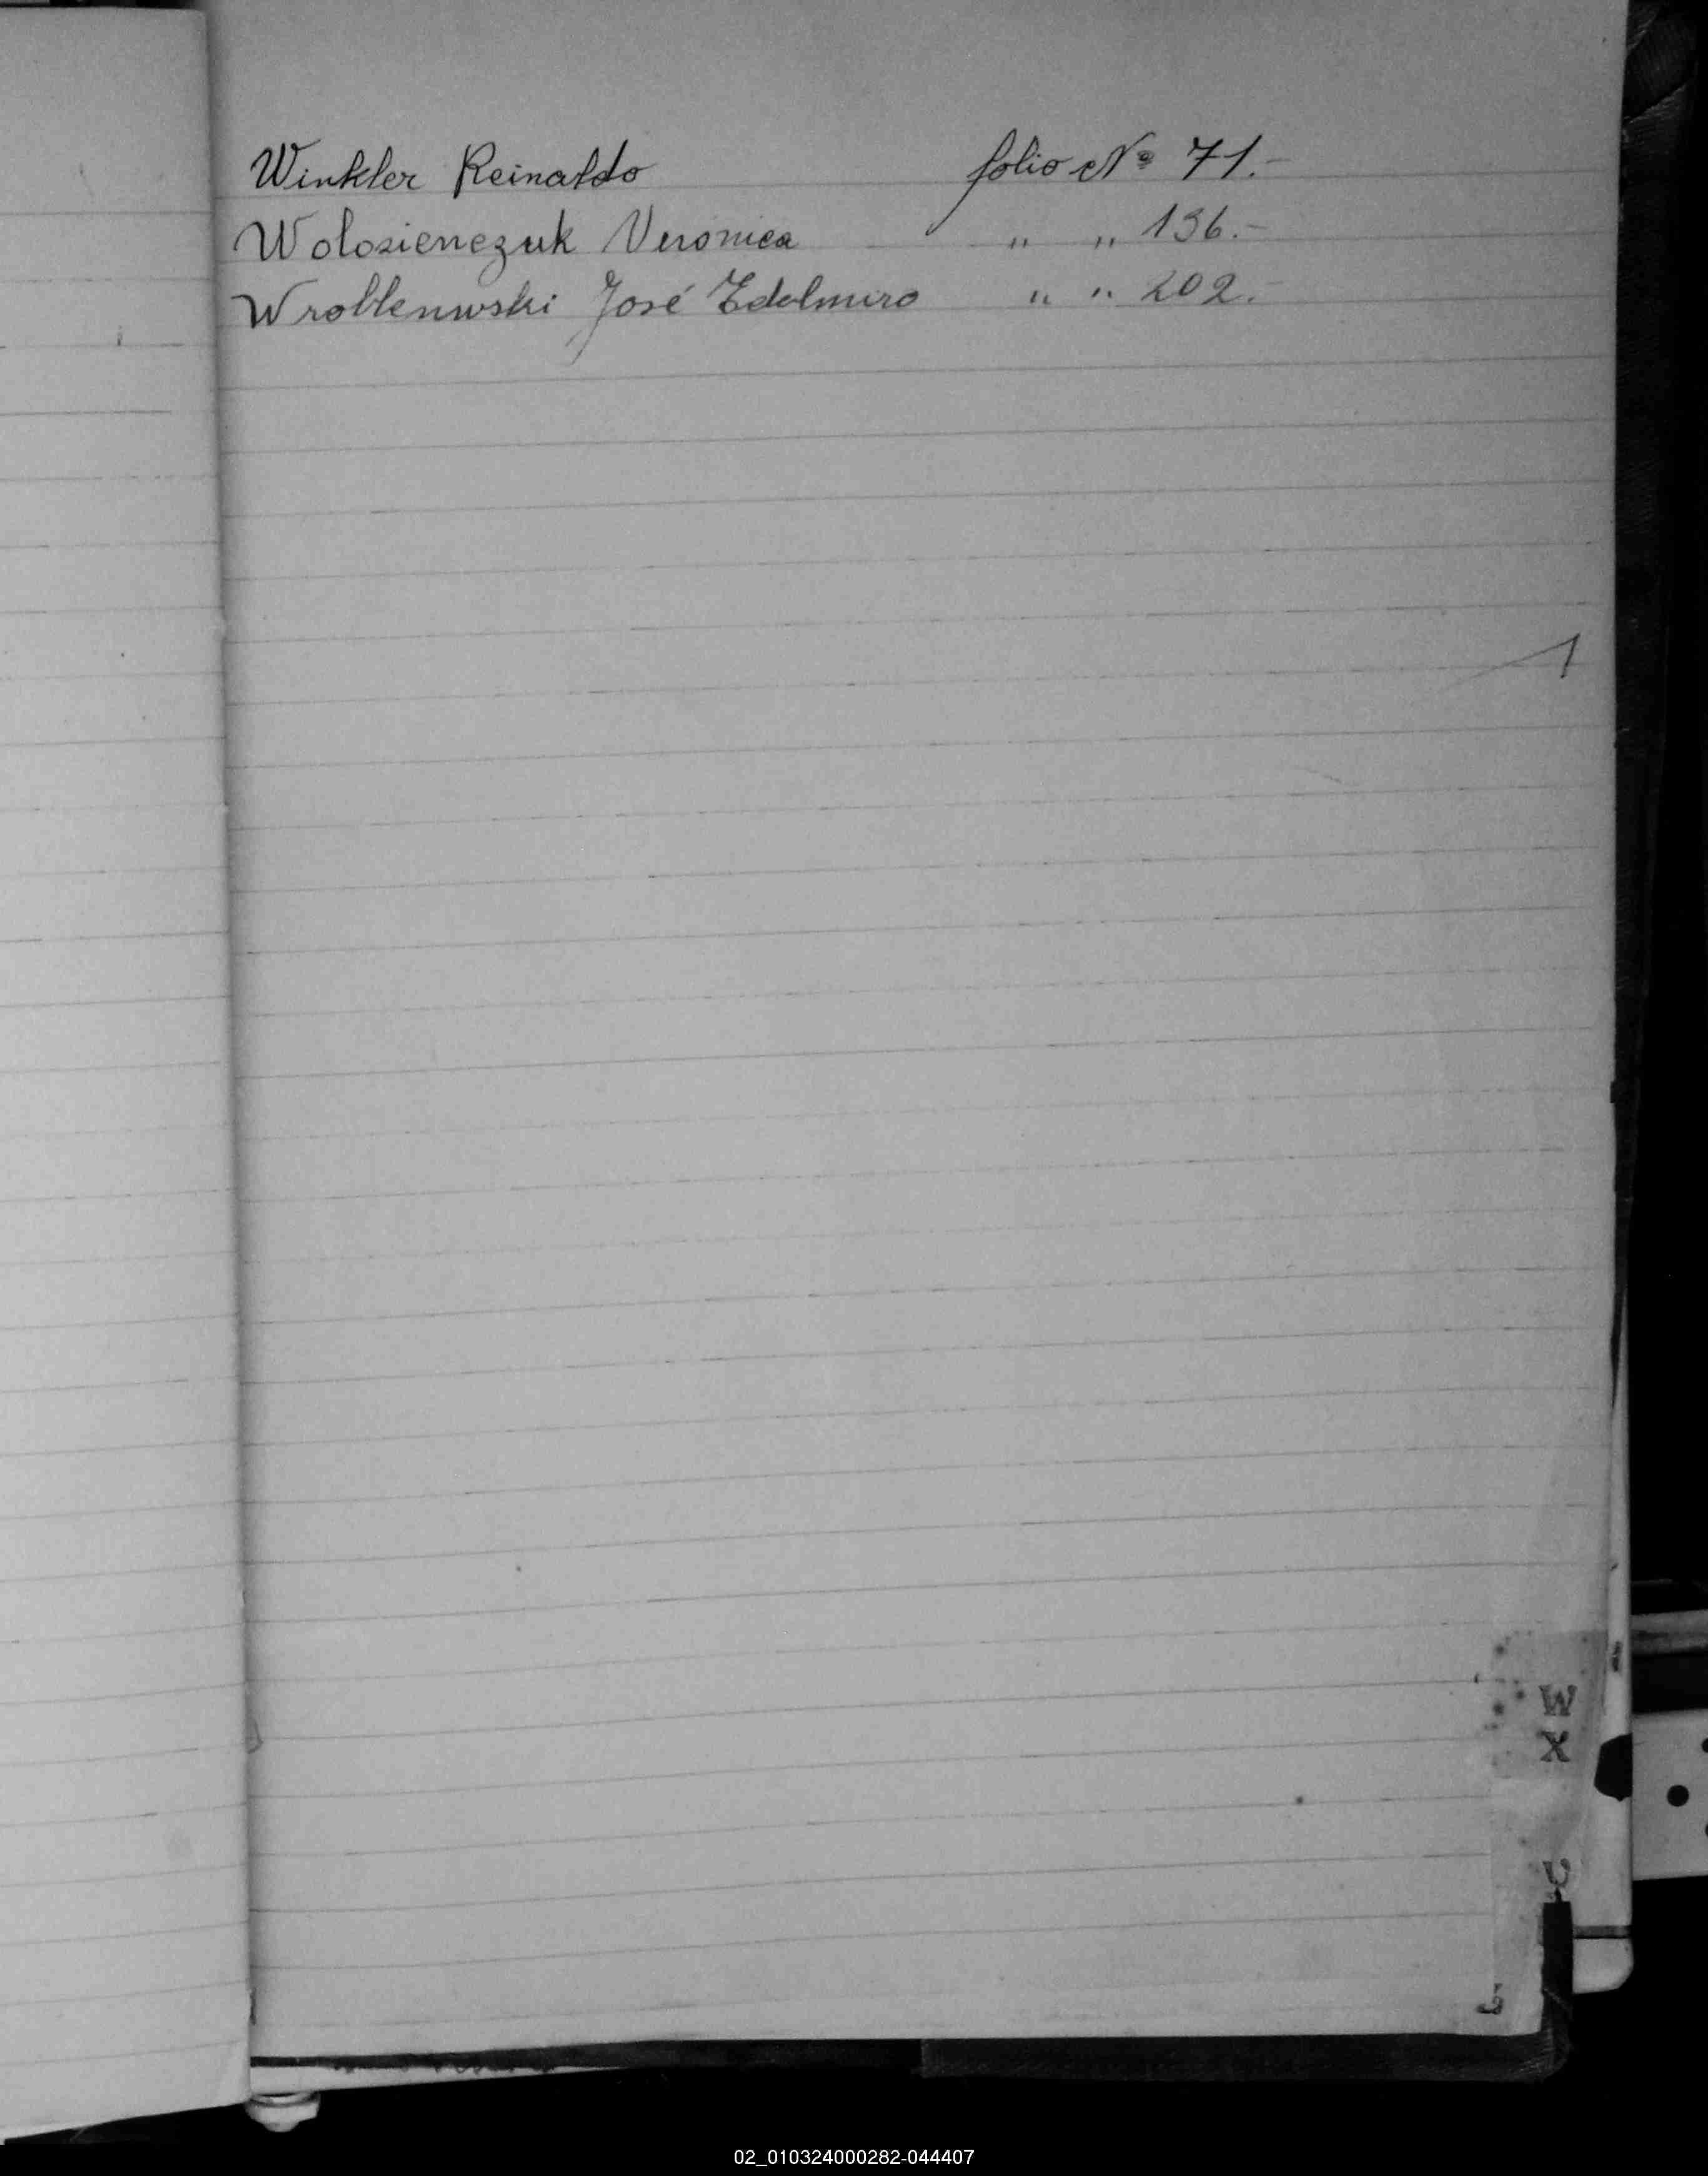 Winkler Reinaldo folio Nº 71.-
Wolosienczuk Veronica " " 136.-
Wroblenwski José Edelmiro " " 202.-
W
X
02_010324000282-044407